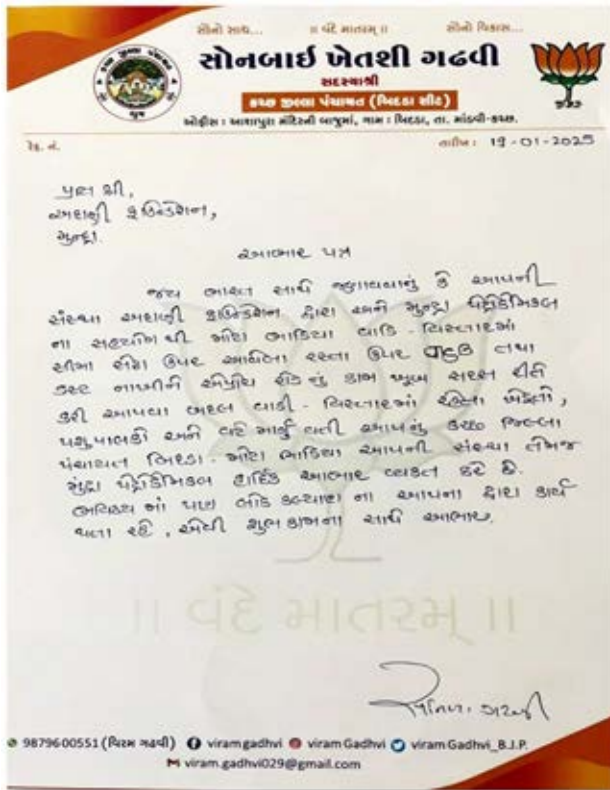 સૌનો સાથ... ॥ વંદે માતરમ્ ॥ સૌનો વિકાસ...
સોનબાઇ ખેતશી ગઢવી
સદસ્યાશ્રી
કચ્છ જીલ્લા પંચાયત (બિદડા સીટ)
ઓફીસ : આશાપુરા મંદિરની બાજુમાં, ગામ : બિદડા, તા. માંડવી-કચ્છ.
રેફ. નં. તારીખ : 19-01-2025
કચ્છ જીલ્લા પંચાયત
ભુજ
ભાજપ
પ્રતિ શ્રી,
અદાણી ફાઉન્ડેશન,
મુન્દ્રા
આભાર પત્ર
જય ભારત સાથે જણાવવાનું કે આપની
સંસ્થા અદાણી ફાઉન્ડેશન દ્વારા અને મુન્દ્રા પેટ્રોકેમિકલ
ના સહયોગ થી મોટા ભાડિયા વાડિ - વિસ્તારમાં
સીમા ઉપર આવેલા રસ્તા ઉપર તથા
નાખીને એપ્રોચ રોડ નું કામ ખુબ સરસ રીતે
કરી આપવા બદલ વાડી - વિસ્તારમાં રહેતા ખેડુતો,
પશુપાલકો અને વતી આપનું કચ્છ જિલ્લા
પંચાયત બિદડા - મોટા ભાડિયા આપની સંસ્થા તેમજ
મુંદ્રા પેટ્રોકેમિકલ હાર્દિક આભાર વ્યકત કરે છે.
ભવિષ્ય માં પણ લોક કલ્યાણ ના આપના દ્વારા કાર્ય
થતા રહે, એવી શુભકામના સાથે આભાર.
॥ વંદે માતરમ્ ॥
9879600551 (વિરમ ગઢવી) viramgadhvi viram Gadhvi viram Gadhvi_B.J.P.
viram.gadhvi029@gmail.com